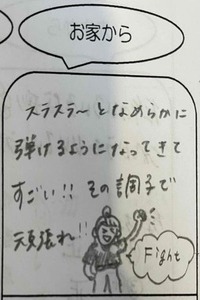 お家から
スラスラ～となめらかに
弾けるようになってきて
すごい!! その調子で
頑張れ!!
Fight